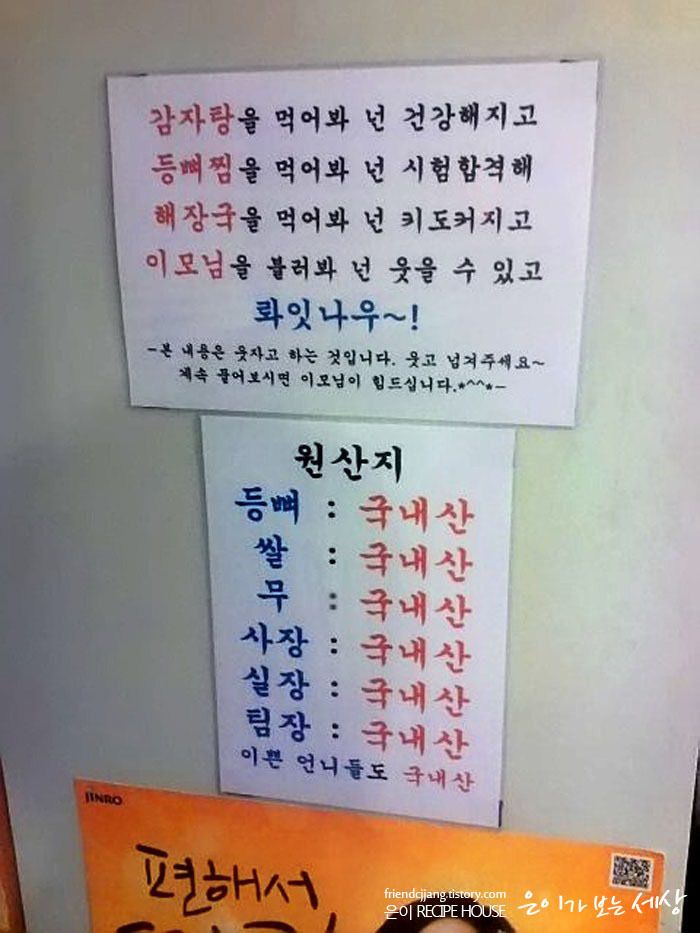 감자탕을 먹어봐 넌 건강해지고
등뼈찜을 먹어봐 넌 시험합격해
해장국을 먹어봐 넌 키도커지고
이모님을 불러봐 넌 웃을 수 있고
롸잇나우~!
-본 내용은 웃자고 하는 것입니다. 웃고 넘겨주세요~
계속 물어보시면 이모님이 힘드십니다.*^^*-
원산지
등뼈 : 국내산
쌀 : 국내산
무 : 국내산
사장 : 국내산
실장 : 국내산
팀장 : 국내산
이쁜 언니들도 국내산
JINRO
편해서
friendcjjang.tistory.com
은이 RECIPE HOUSE 은이가 보는 세상